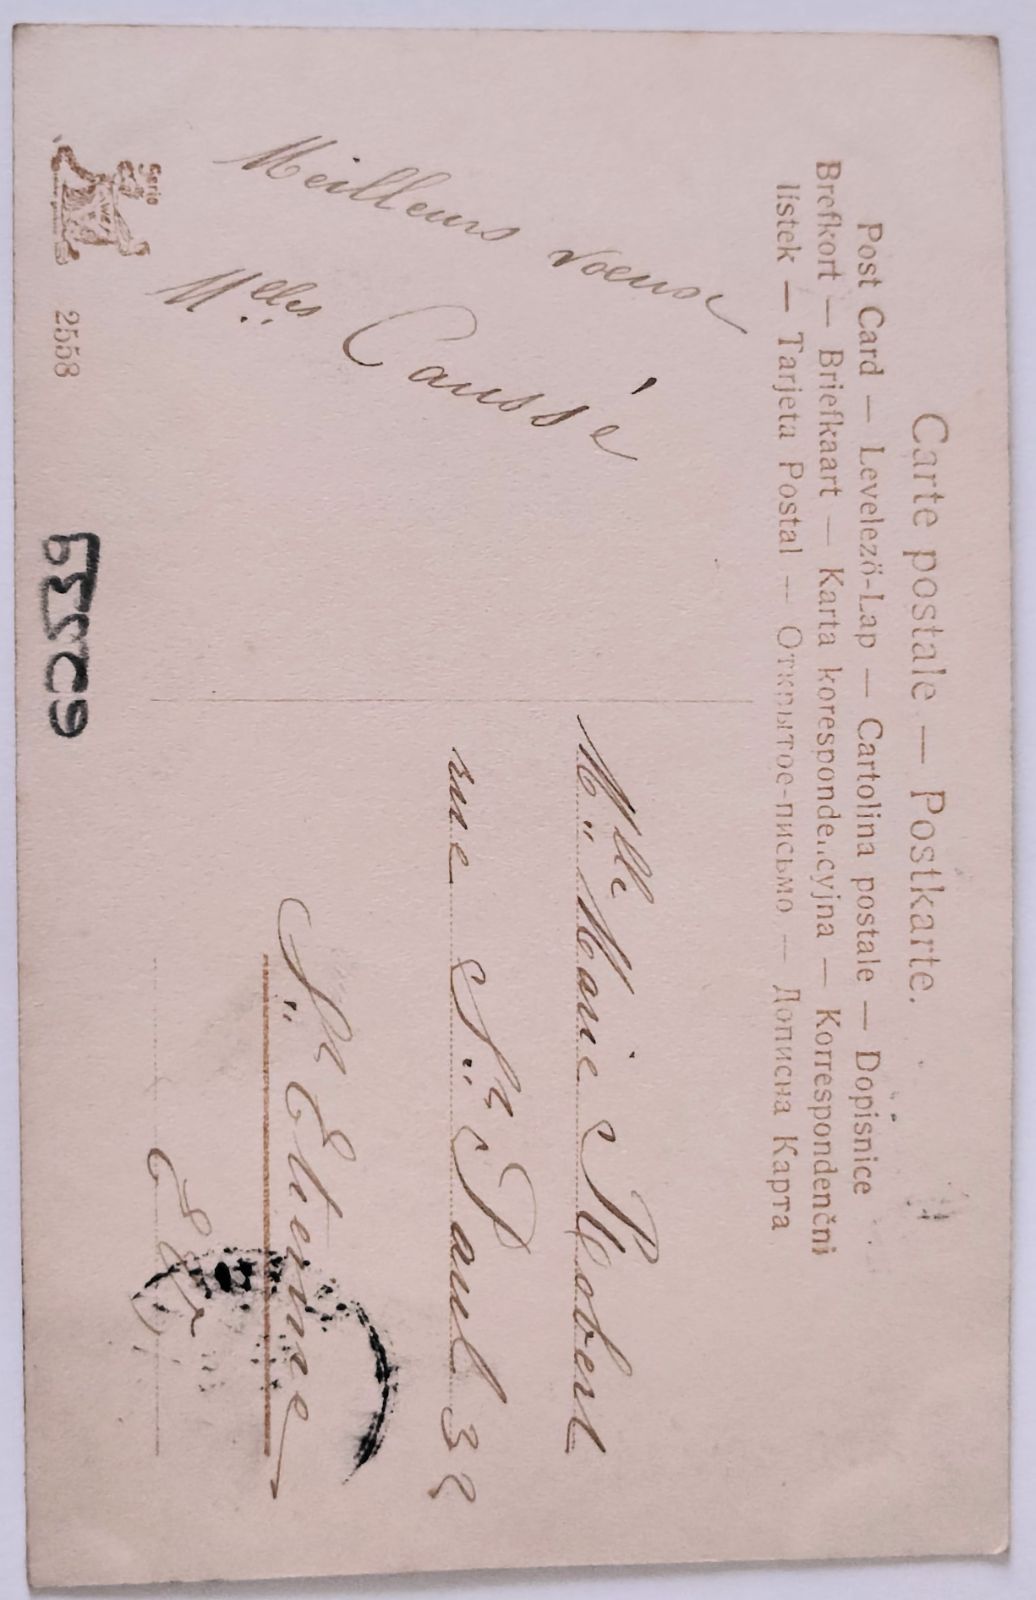 Carte postale — Postkarte.
Post Card — Levelezö-Lap — Cartolina postale — Dopisnice
Brefkort — Briefkaart — Karta korespondencyjna — Korrespondenční
listek — Tarjeta Postal — Открытое-письмо — Дописна Карта
Meilleurs voeux
Melles Caussé
Melle Marie Robert
rue St Paul 32
St Etienne
E.V.
Serie
2558